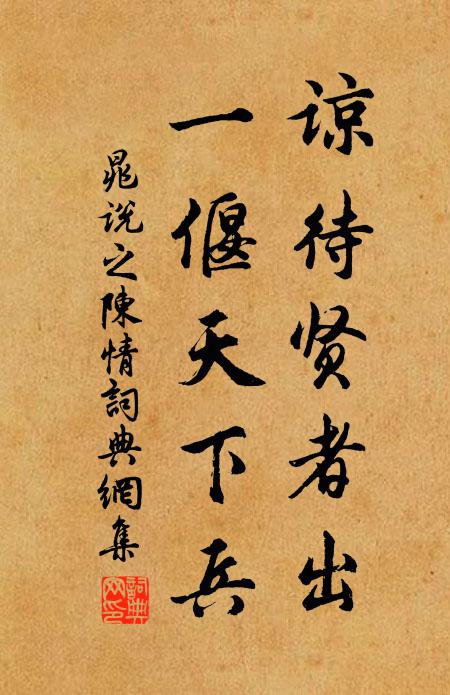 谅待贤者出
一偃天下兵
晁说之陳情詞典網集
詞典网印